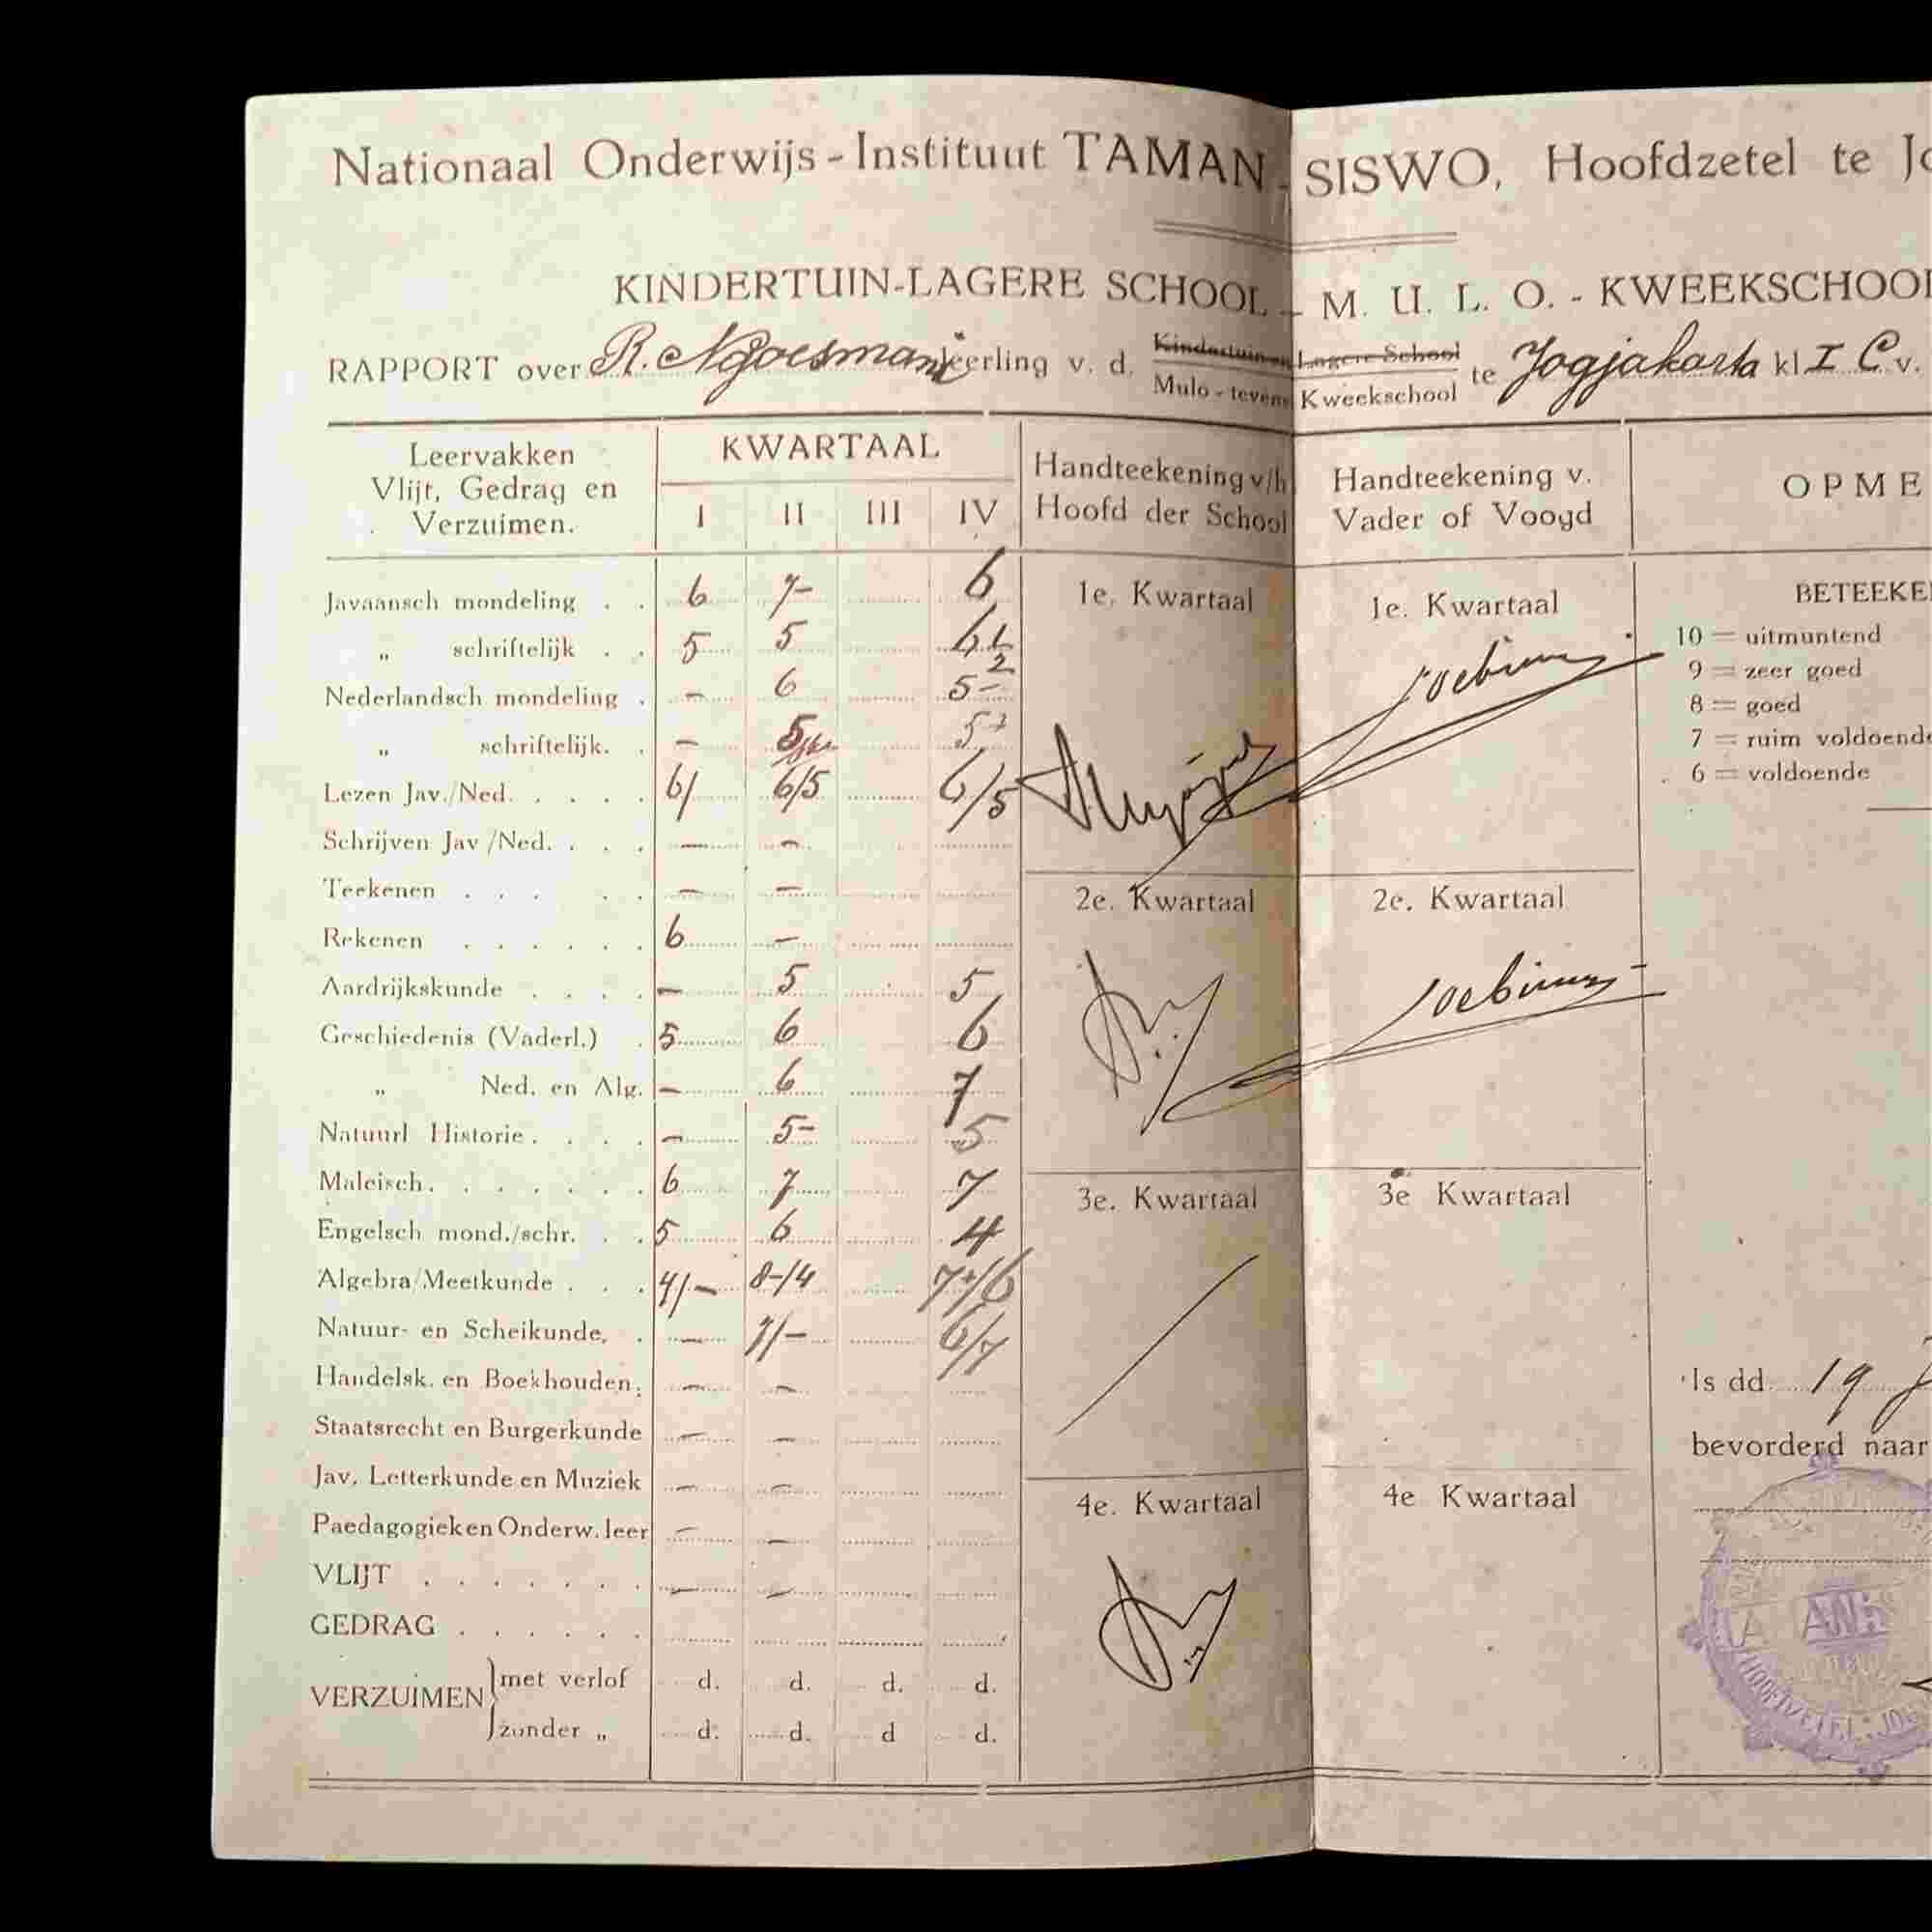 Nationaal Onderwijs-Instituut TAMAN-SISWO, Hoofdzetel te
KINDERTUIN-LAGERE SCHOOL - M. U. L. O. - KWEEKSCHOOL
RAPPORT over R. Ngoesman leerling v. d. Kindertuin en Lagere School te Jogjakarta kl I C v.
Mulo-tevens Kweekschool
Leervakken
Vlijt, Gedrag en
Verzuimen.
KWARTAAL
I II III IV
Handteekening v/h
Hoofd der School
Handteekening v.
Vader of Voogd
OPME
Javaansch mondeling . . 6 7- 6
„ schriftelijk . . 5 5 6 1/2
Nederlandsch mondeling . - 6 5-
„ schriftelijk. . - 5 5+
Lezen Jav./Ned. . . . . 6/ 6/5 6/5
Schrijven Jav /Ned. . . . - -
Teekenen . . . . . - -
Rekenen . . . . . . 6 -
Aardrijkskunde . . . . - 5 5
Geschiedenis (Vaderl.) . 5 6 6
„ Ned. en Alg. - 6 7
Natuurl Historie . . . . - 5- 5
Maleisch . . . . . . . 6 7 7
Engelsch mond./schr. . . 5 6 4
Algebra/Meetkunde . . . 4/- 8-/4 7+/6
Natuur- en Scheikunde, . - 7/- 6/7
Handelsk. en Boekhouden. - -
Staatsrecht en Burgerkunde - -
Jav. Letterkunde en Muziek - -
Paedagogiek en Onderw. leer - -
VLIJT . . . . . . . - -
GEDRAG . . . . . .
VERZUIMEN met verlof d. d. d. d.
zonder „ d. d. d d.
1e. Kwartaal
2e. Kwartaal
3e. Kwartaal
4e. Kwartaal
1e. Kwartaal
2e. Kwartaal
3e Kwartaal
4e Kwartaal
BETEEKE
10 = uitmuntend
9 = zeer goed
8 = goed
7 = ruim voldoende
6 = voldoende
Is dd. 19
bevorderd naar